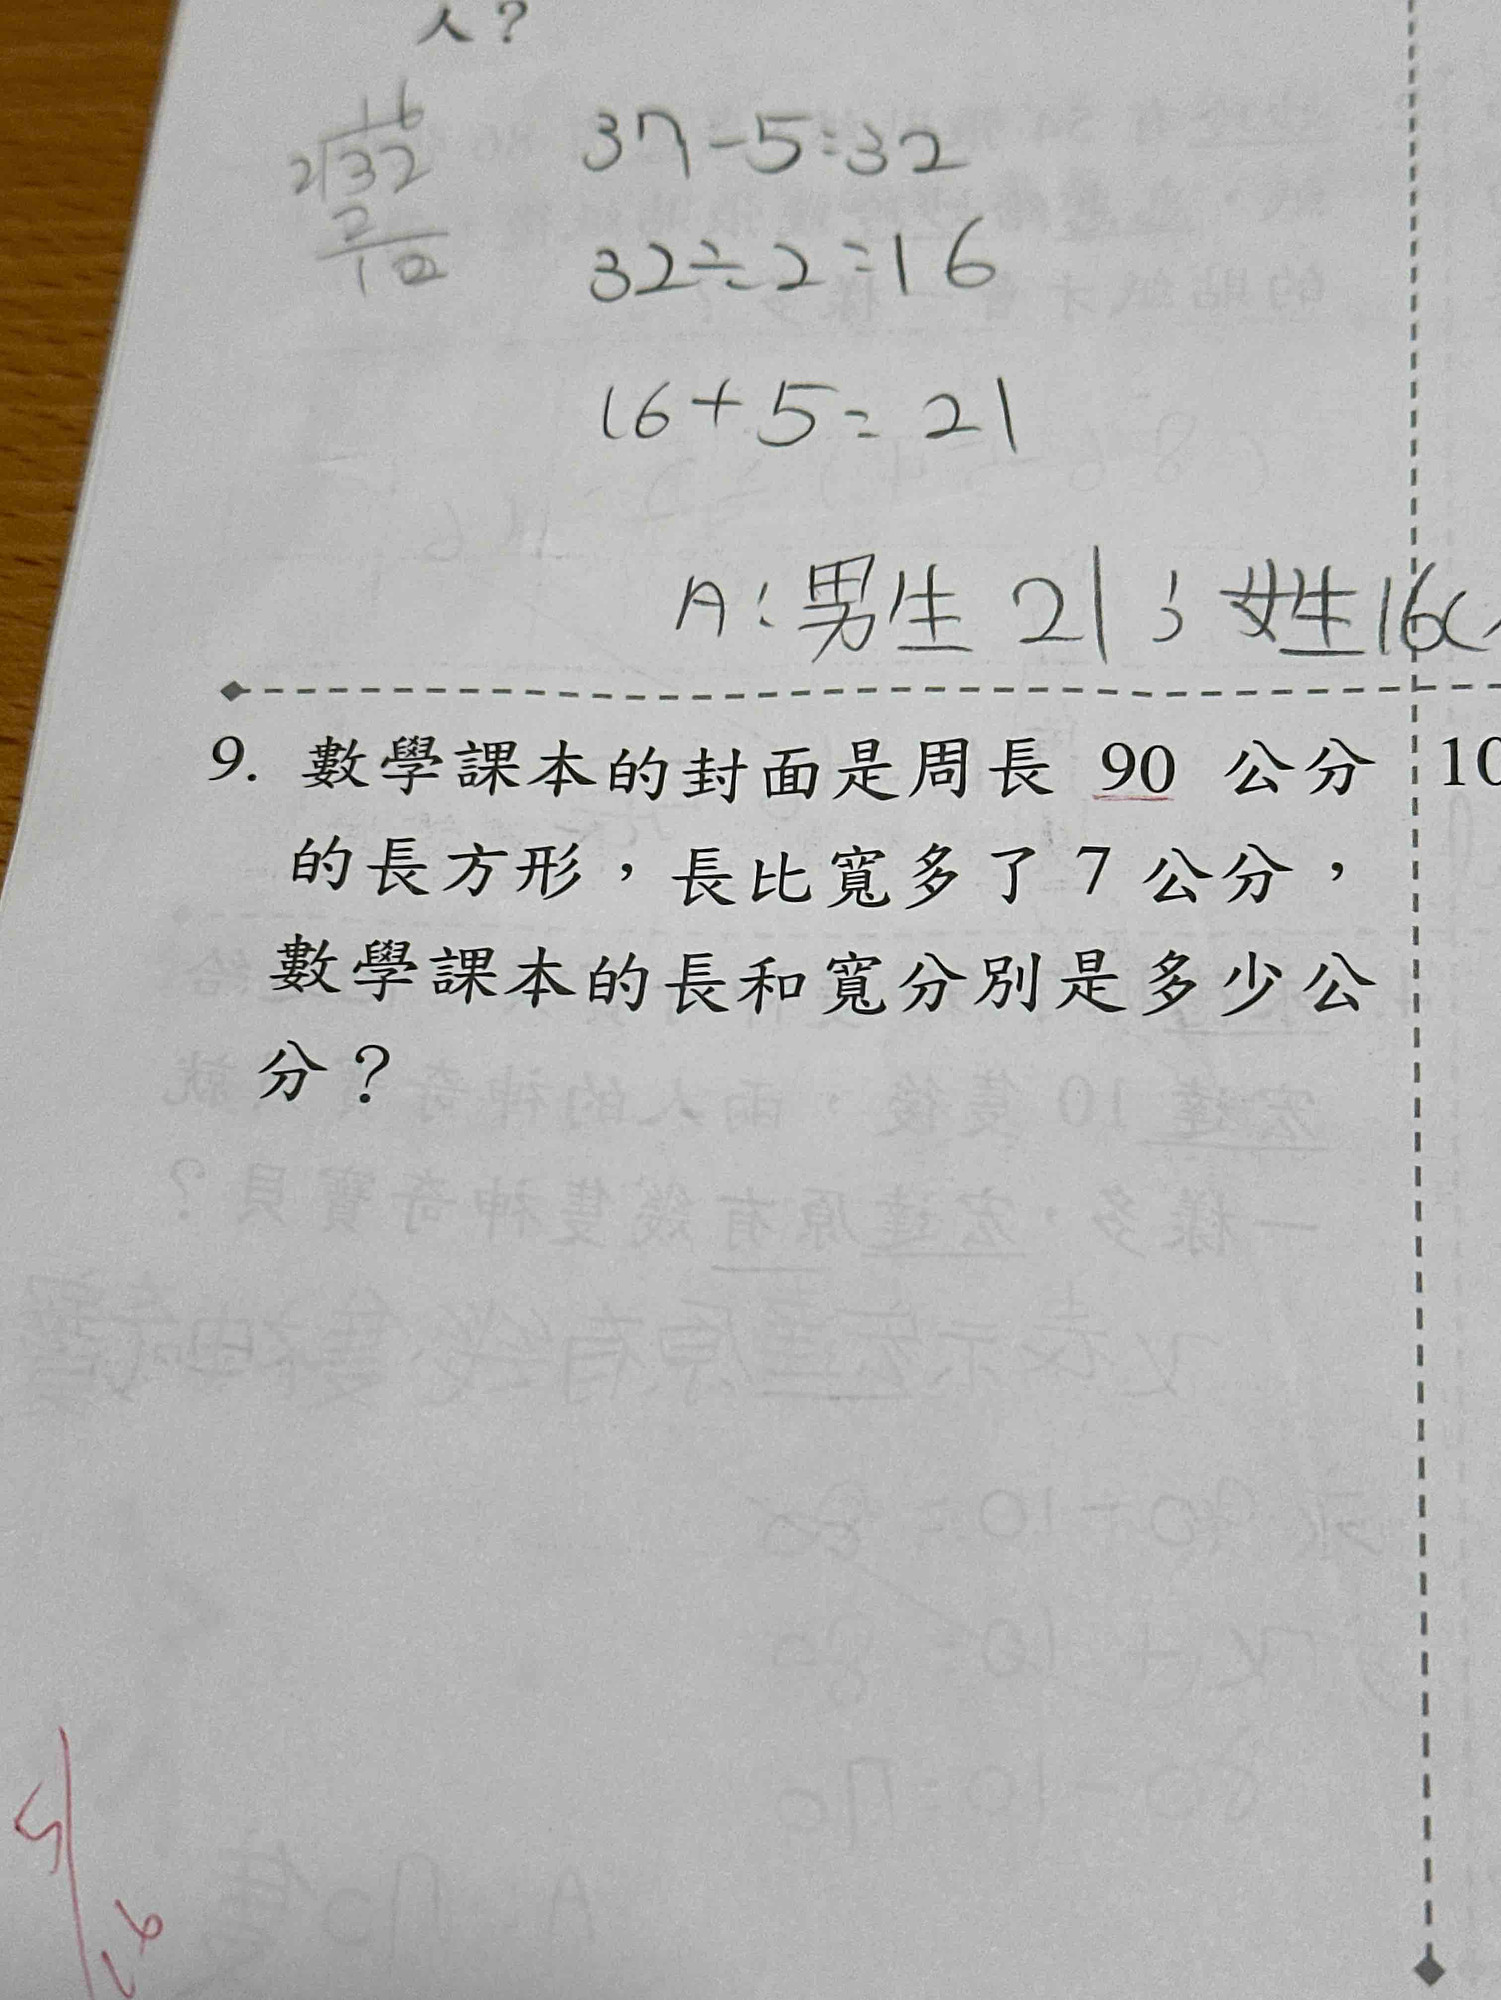 人？
16
2)32 37-5=32
2
12 32÷2=16
16+5=21
A:男生21;女生16
9. 數學課本的封面是周長 90 公分
的長方形，長比寬多了 7 公分，
數學課本的長和寬分別是多少公
分？
10
5/26